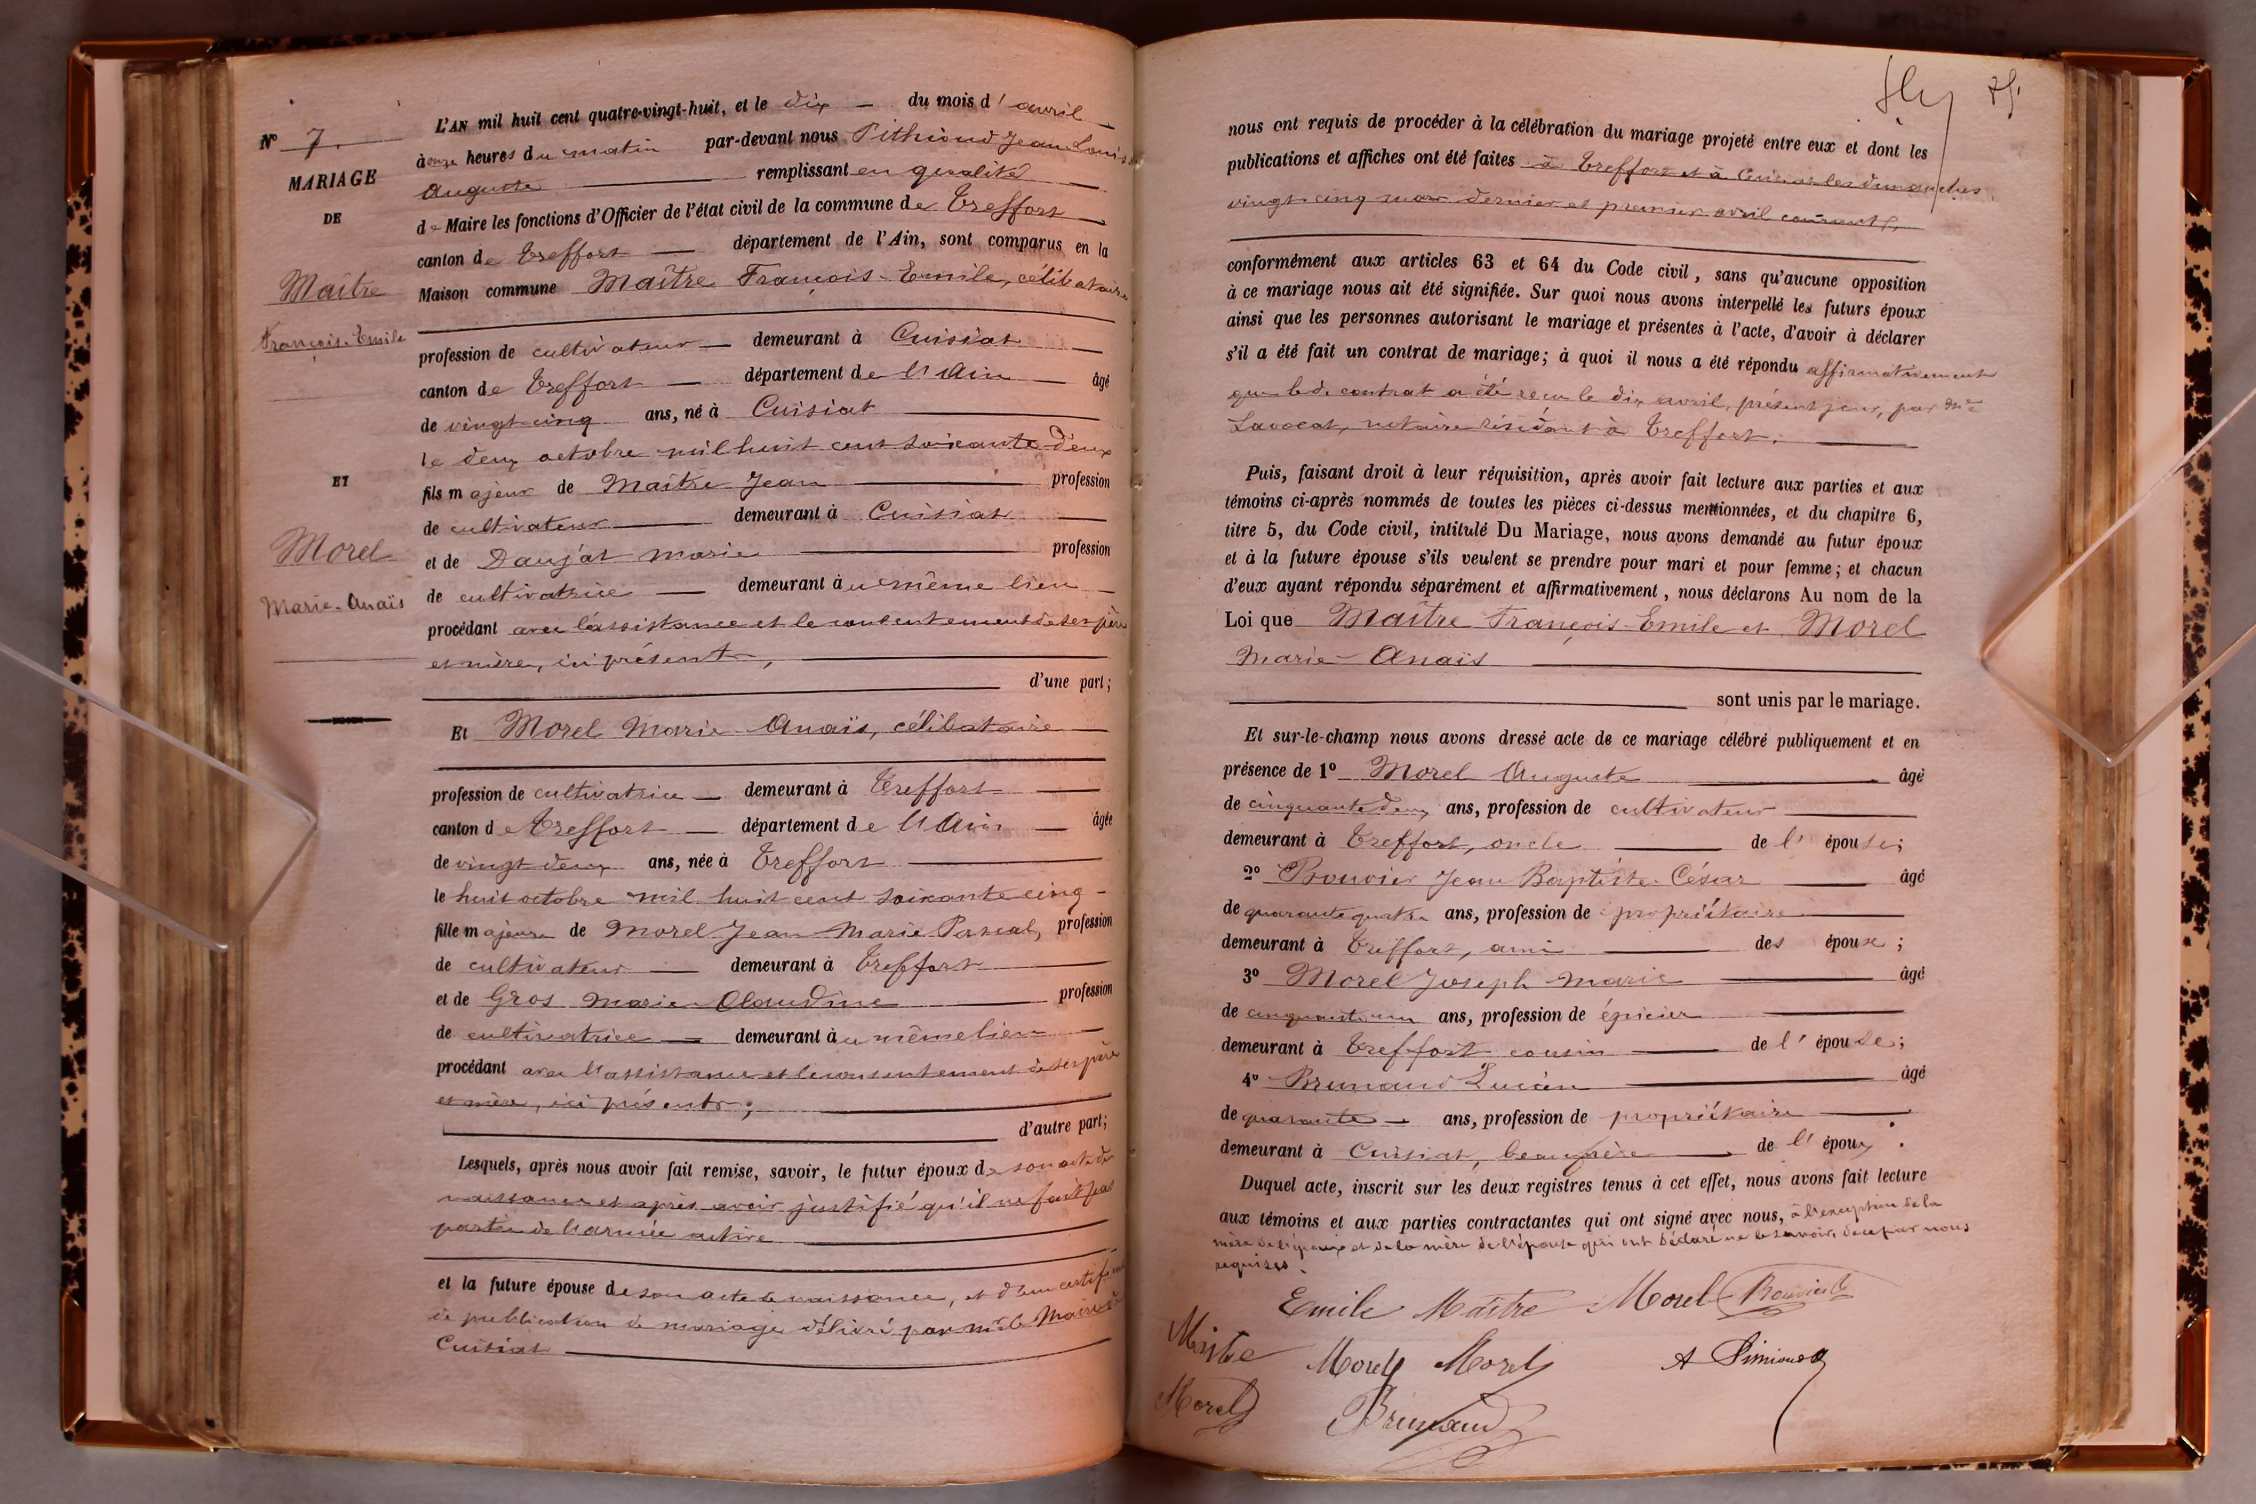 N° 7.
MARIAGE
DE
Maître
François-Emile
ET
Morel
Marie-Anaïs
L'AN mil huit cent quatre-vingt-huit, et le dix du mois d'avril
à onze heures du matin par-devant nous Jean Louis
Auguste remplissant en qualité
de Maire les fonctions d'Officier de l'état civil de la commune de Treffort
canton de Treffort département de l'Ain, sont comparus en la
Maison commune Maître François-Emile, célibataire
profession de cultivateur demeurant à Cuisiat
canton de Treffort département de l'Ain âgé
de vingt-cinq ans, né à Cuisiat
le deux octobre mil huit cent soixante-deux
fils majeur de Maître Jean profession
de cultivateur demeurant à Cuisiat
et de Daujat Marie profession
de cultivatrice demeurant au même lieu
procédant avec l'assistance et le consentement de ses père
et mère, ici présents,
d'une part;
Et Morel Marie-Anaïs, célibataire
profession de cultivatrice demeurant à Treffort
canton de Treffort département de l'Ain âgée
de vingt deux ans, née à Treffort
le huit octobre mil huit cent soixante cinq
fille majeure de Morel Jean Marie Pascal, profession
de cultivateur demeurant à Treffort
et de Gros Marie-Claudine profession
de cultivatrice demeurant au même lieu
procédant avec l'assistance et le consentement de ses père
et mère, ici présents;
d'autre part;
Lesquels, après nous avoir fait remise, savoir, le futur époux de son acte de
naissance et après avoir justifié qu'il ne fait pas
partie de l'armée active
et la future épouse de son acte de naissance, et d'un certificat
de publication de mariage délivré par Mr le Maire de
Cuisiat
nous ont requis de procéder à la célébration du mariage projeté entre eux et dont les
publications et affiches ont été faites à Treffort et à Cuisiat les dimanches
vingt-cinq mars dernier et premier avril courant,
conformément aux articles 63 et 64 du Code civil, sans qu'aucune opposition
à ce mariage nous ait été signifiée. Sur quoi nous avons interpellé les futurs époux
ainsi que les personnes autorisant le mariage et présentes à l'acte, d'avoir à déclarer
s'il a été fait un contrat de mariage; à quoi il nous a été répondu affirmativement
que led. contrat a été reçu le dix avril, présent jour, par Me
Lavocat, notaire résidant à Treffort.
Puis, faisant droit à leur réquisition, après avoir fait lecture aux parties et aux
témoins ci-après nommés de toutes les pièces ci-dessus mentionnées, et du chapitre 6,
titre 5, du Code civil, intitulé Du Mariage, nous avons demandé au futur époux
et à la future épouse s'ils veulent se prendre pour mari et pour femme; et chacun
d'eux ayant répondu séparément et affirmativement, nous déclarons Au nom de la
Loi que Maître François-Emile et Morel
Marie-Anaïs
sont unis par le mariage.
Et sur-le-champ nous avons dressé acte de ce mariage célébré publiquement et en
présence de 1° Morel Auguste âgé
de cinquante deux ans, profession de cultivateur
demeurant à Treffort, oncle de l'épouse;
2° Bouvier Jean Baptiste César âgé
de quarante quatre ans, profession de propriétaire
demeurant à Treffort, ami des époux;
3° Morel Joseph Marie âgé
de cinquante un ans, profession de épicier
demeurant à Treffort cousin de l'épouse;
4° Brunaud Lucien âgé
de quarante ans, profession de propriétaire
demeurant à Cuisiat, beau-frère de l'époux.
Duquel acte, inscrit sur les deux registres tenus à cet effet, nous avons fait lecture
aux témoins et aux parties contractantes qui ont signé avec nous, à l'exception de la
mère de l'époux et de la mère de l'épouse qui ont déclaré ne le savoir, de ce par nous
requises.
Emile Maître Morel Bouvier
Maître Morel Morel
Morel Brunaud